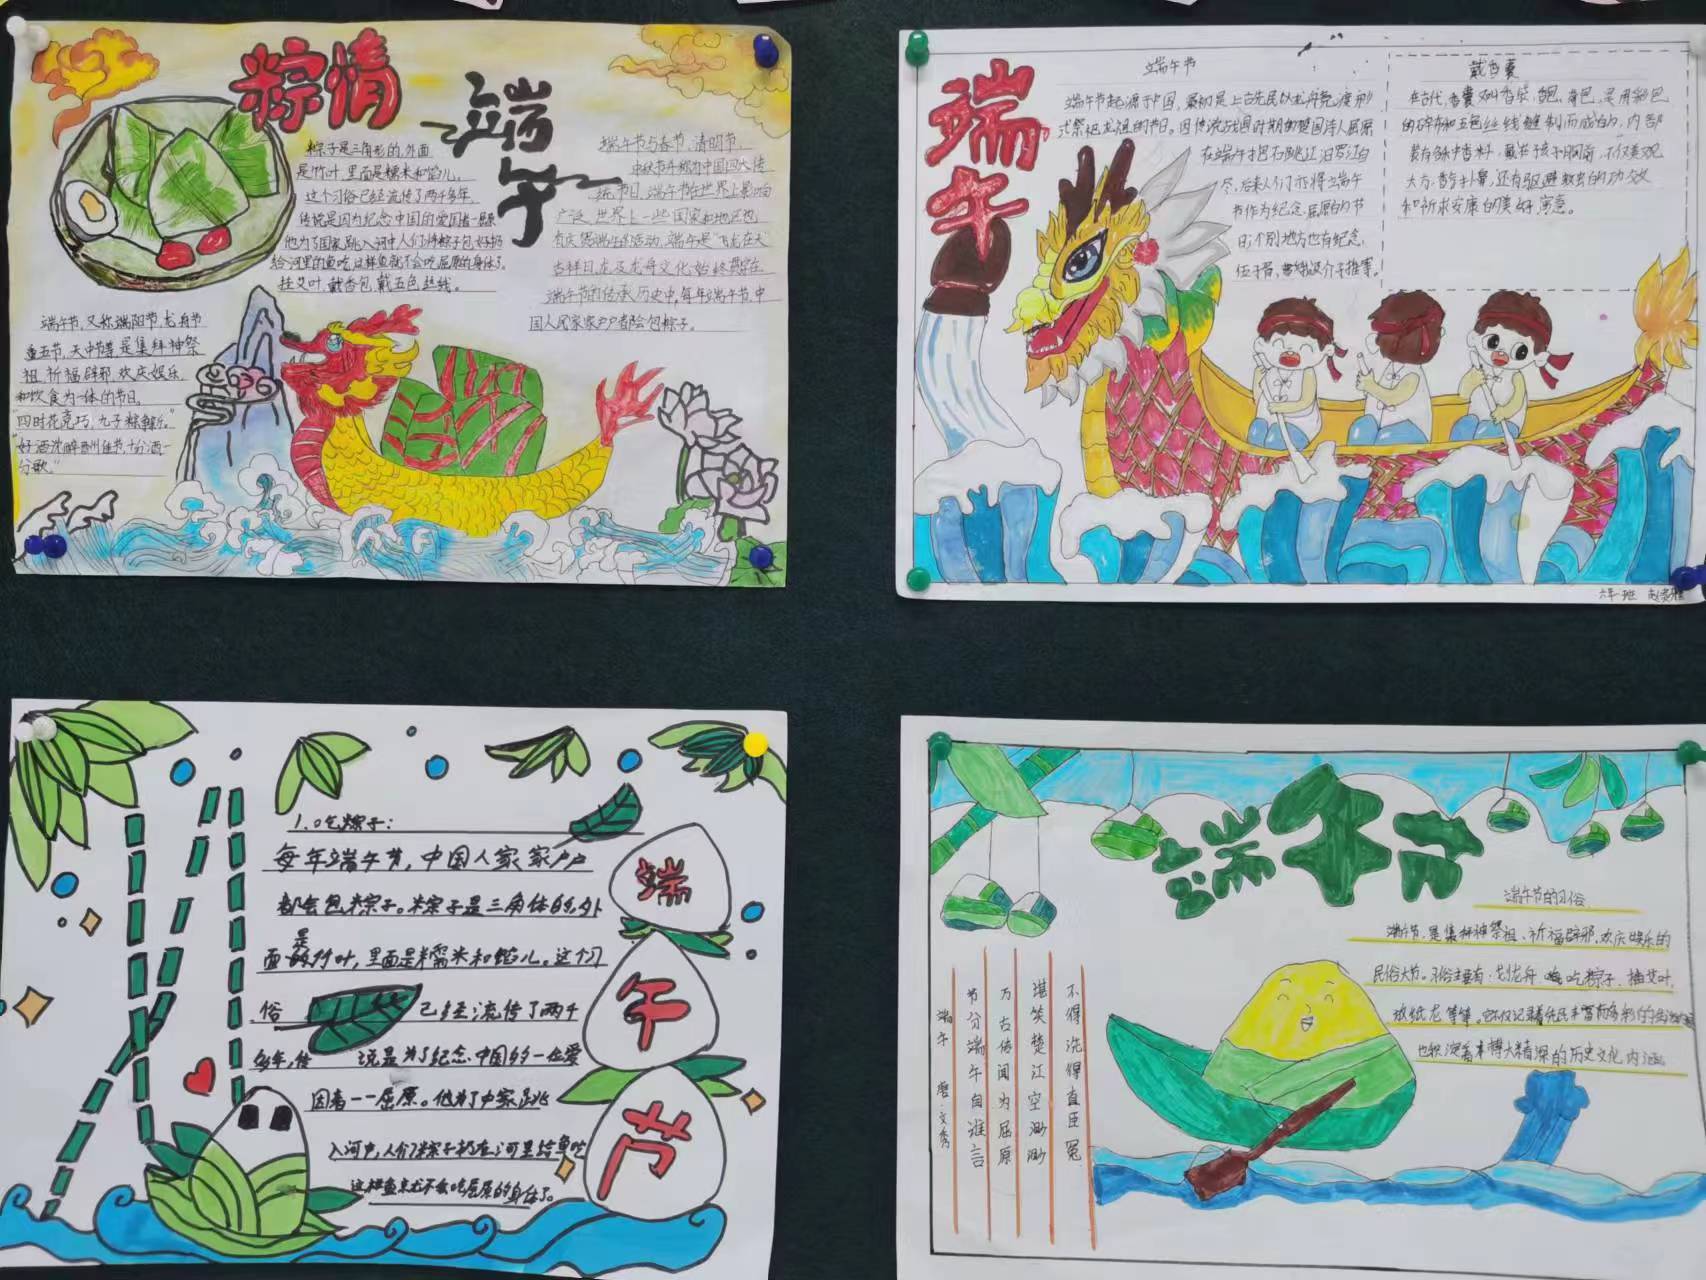 粽情
端午
粽子是三角形的,外面
是竹叶,里面是糯米和馅儿。
这个习俗已经流传了两千多年。
传说是因为纪念中国的爱国者一屈原
他为了国家跳入河中人们将粽子包好扔
给河里的鱼吃,这样鱼就不会吃屈原的身体了。
挂艾叶,戴香包,戴五色丝线。
端午节与春节、清明节、
中秋节并称为中国四大传
统节日,端午节在世界上影响
广泛,世界上一些国家和地区也
有庆贺端午的活动,端午是"飞龙在天"
吉祥日,龙及龙舟文化始终贯穿在
端午节的传承历史中,每年端午节,中
国人民家家户户都会包粽子。
端午节,又称端阳节,龙舟节
重五节,天中节等是集拜神祭
祖,祈福辟邪,欢庆娱乐
和饮食为一体的节日。
"四时花竞巧,九子粽争新。"
"好酒沈醉酬佳节,十分酒一
分歌"
端午
端午节
端午节起源于中国,最初是上古先民以龙舟竞渡形
式祭祀龙祖的节日。因传说战国时期的楚国诗人屈原
在端午抱石跳江汨罗江自
尽,后来人们亦将端午
节作为纪念屈原的节
日;个别地方也有纪念
伍子胥,曹娥及介子推等。
戴香囊
在古代,香囊又叫香袋、香包、荷包,是用彩色
的碎布和五色丝线缝制而成的,内部
装有多种中香料,戴在孩子胸前,不仅美观
大方,香气扑鼻,还有驱避蚊虫的功效
和祈求安康的美好寓意。
六年一班
1.吃粽子:
每年端午节,中国人家家户户
都会包粽子。粽子是三角体的,外
面是竹叶,里面是糯米和馅儿。这个习
俗 已经流传了两千
多年,传 说是为了纪念中国的一位爱
国者一一屈原。他为了国家跳
入河中,人们将粽子扔在河里给鱼吃
这样鱼就不会吃屈原的身体了。
端
午
节
端午节
端午节的习俗
端午节,是集拜神祭祖、祈福辟邪,欢庆娱乐的
民俗大节。习俗主要有:划龙舟,吃粽子,插艾叶,
放纸龙等等。
也积淀着丰博大精深的历史文化内涵
不得洗得直臣冤
堪笑楚江空渺渺
万古传闻为屈原
节分端午自谁言
端午 唐·文秀